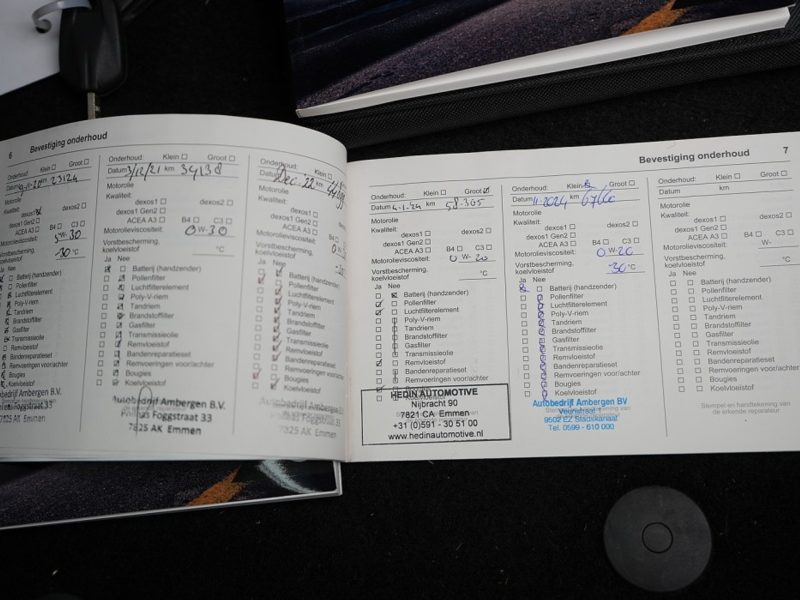 6 Bevestiging onderhoud
Klein Groot
Datum 23124
Motorolie
Kwaliteit:
dexos1 dexos2
dexos1 Gen2
ACEA A3 B4 C3
Motorolieviscositeit: 5W-30
Vorstbescherming,
koelvloeistof -30 °C
Ja Nee
Batterij (handzender)
Pollenfilter
Luchtfilterelement
Poly-V-riem
Tandriem
Brandstoffilter
Gasfilter
Transmissieolie
Remvloeistof
Bandenreparatieset
Remvoeringen voor/achter
Bougies
Koelvloeistof
Autobedrijf Ambergen B.V.
Foggstraat 33
7825 AK Emmen
Onderhoud: Klein Groot
Datum 3/12/21 km 34138
Motorolie
Kwaliteit:
dexos1 dexos2
dexos1 Gen2
ACEA A3 B4 C3
Motorolieviscositeit: 0W-30
Vorstbescherming,
koelvloeistof °C
Ja Nee
Batterij (handzender)
Pollenfilter
Luchtfilterelement
Poly-V-riem
Tandriem
Brandstoffilter
Gasfilter
Transmissieolie
Remvloeistof
Bandenreparatieset
Remvoeringen voor/achter
Bougies
Koelvloeistof
Autobedrijf Ambergen B.V.
Foggstraat 33
7825 AK Emmen
Onderhoud: Klein Groot
Datum Dec. '22 km
Motorolie
Kwaliteit:
dexos1 dexos2
dexos1 Gen2
ACEA A3 B4 C3
Motorolieviscositeit:
Vorstbescherming,
koelvloeistof
Ja Nee
Batterij (handzender)
Pollenfilter
Luchtfilterelement
Poly-V-riem
Tandriem
Brandstoffilter
Gasfilter
Transmissieolie
Remvloeistof
Bandenreparatieset
Remvoeringen voor/achter
Bougies
Koelvloeistof
Autobedrijf Ambergen B.V.
Foggstraat 33
7825 AK Emmen
Bevestiging onderhoud 7
Onderhoud: Klein Groot
Datum 4-1-24 km 58.365
Motorolie
Kwaliteit:
dexos1 dexos2
dexos1 Gen2
ACEA A3 B4 C3
Motorolieviscositeit: 0 W- 20
Vorstbescherming,
koelvloeistof °C
Ja Nee
Batterij (handzender)
Pollenfilter
Luchtfilterelement
Poly-V-riem
Tandriem
Brandstoffilter
Gasfilter
Transmissieolie
Remvloeistof
Bandenreparatieset
Remvoeringen voor/achter
HEDIN AUTOMOTIVE
Nijbracht 90
7821 CA Emmen
+31 (0)591 - 30 51 00
www.hedinautomotive.nl
Onderhoud: Klein Groot
Datum 11-2024 km
Motorolie
Kwaliteit:
dexos1 dexos2
dexos1 Gen2
ACEA A3 B4 C3
Motorolieviscositeit: 0 W-20
Vorstbescherming,
koelvloeistof -30 °C
Ja Nee
Batterij (handzender)
Pollenfilter
Luchtfilterelement
Poly-V-riem
Tandriem
Brandstoffilter
Gasfilter
Transmissieolie
Remvloeistof
Bandenreparatieset
Remvoeringen voor/achter
Bougies
Koelvloeistof
Autobedrijf Ambergen BV
Veenstraat
9502 EZ Stadskanaal
Tel. 0599 - 610 000
Onderhoud: Klein Groot
Datum km
Motorolie
Kwaliteit:
dexos1 dexos2
dexos1 Gen2
ACEA A3 B4 C3
Motorolieviscositeit: W-
Vorstbescherming,
koelvloeistof °C
Ja Nee
Batterij (handzender)
Pollenfilter
Luchtfilterelement
Poly-V-riem
Tandriem
Brandstoffilter
Gasfilter
Transmissieolie
Remvloeistof
Bandenreparatieset
Remvoeringen voor/achter
Bougies
Koelvloeistof
Stempel en handtekening van
de erkende reparateur